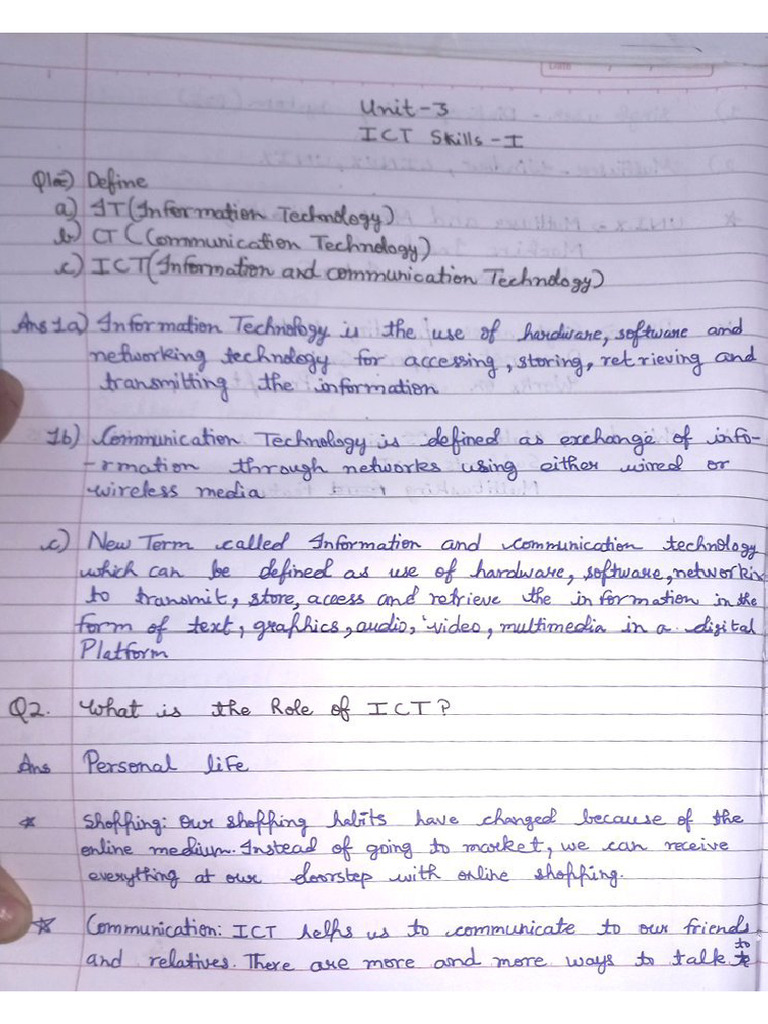 Date
Unit-3
ICT Skills-I
Q1a) Define
a) IT (Information Technology)
b) CT (Communication Technology)
c) ICT (Information and communication Technology)
Ans 1a) Information Technology is the use of hardware, software and
networking technology for accessing, storing, retrieving and
transmitting the information
1b) Communication Technology is defined as exchange of info-
-rmation through networks using either wired or
wireless media
c) New Term called Information and communication technology
which can be defined as use of hardware, software, networkin
to transmit, store, access and retrieve the information in the
form of text, graphics, audio, video, multimedia in a digital
Platform
Q2. What is the Role of ICT?
Ans Personal life
* Shopping: Our shopping habits have changed because of the
online medium. Instead of going to market, we can receive
everything at our doorstep with online shopping.
* Communication: ICT helps us to communicate to our friends
and relatives. There are more and more ways to talk to